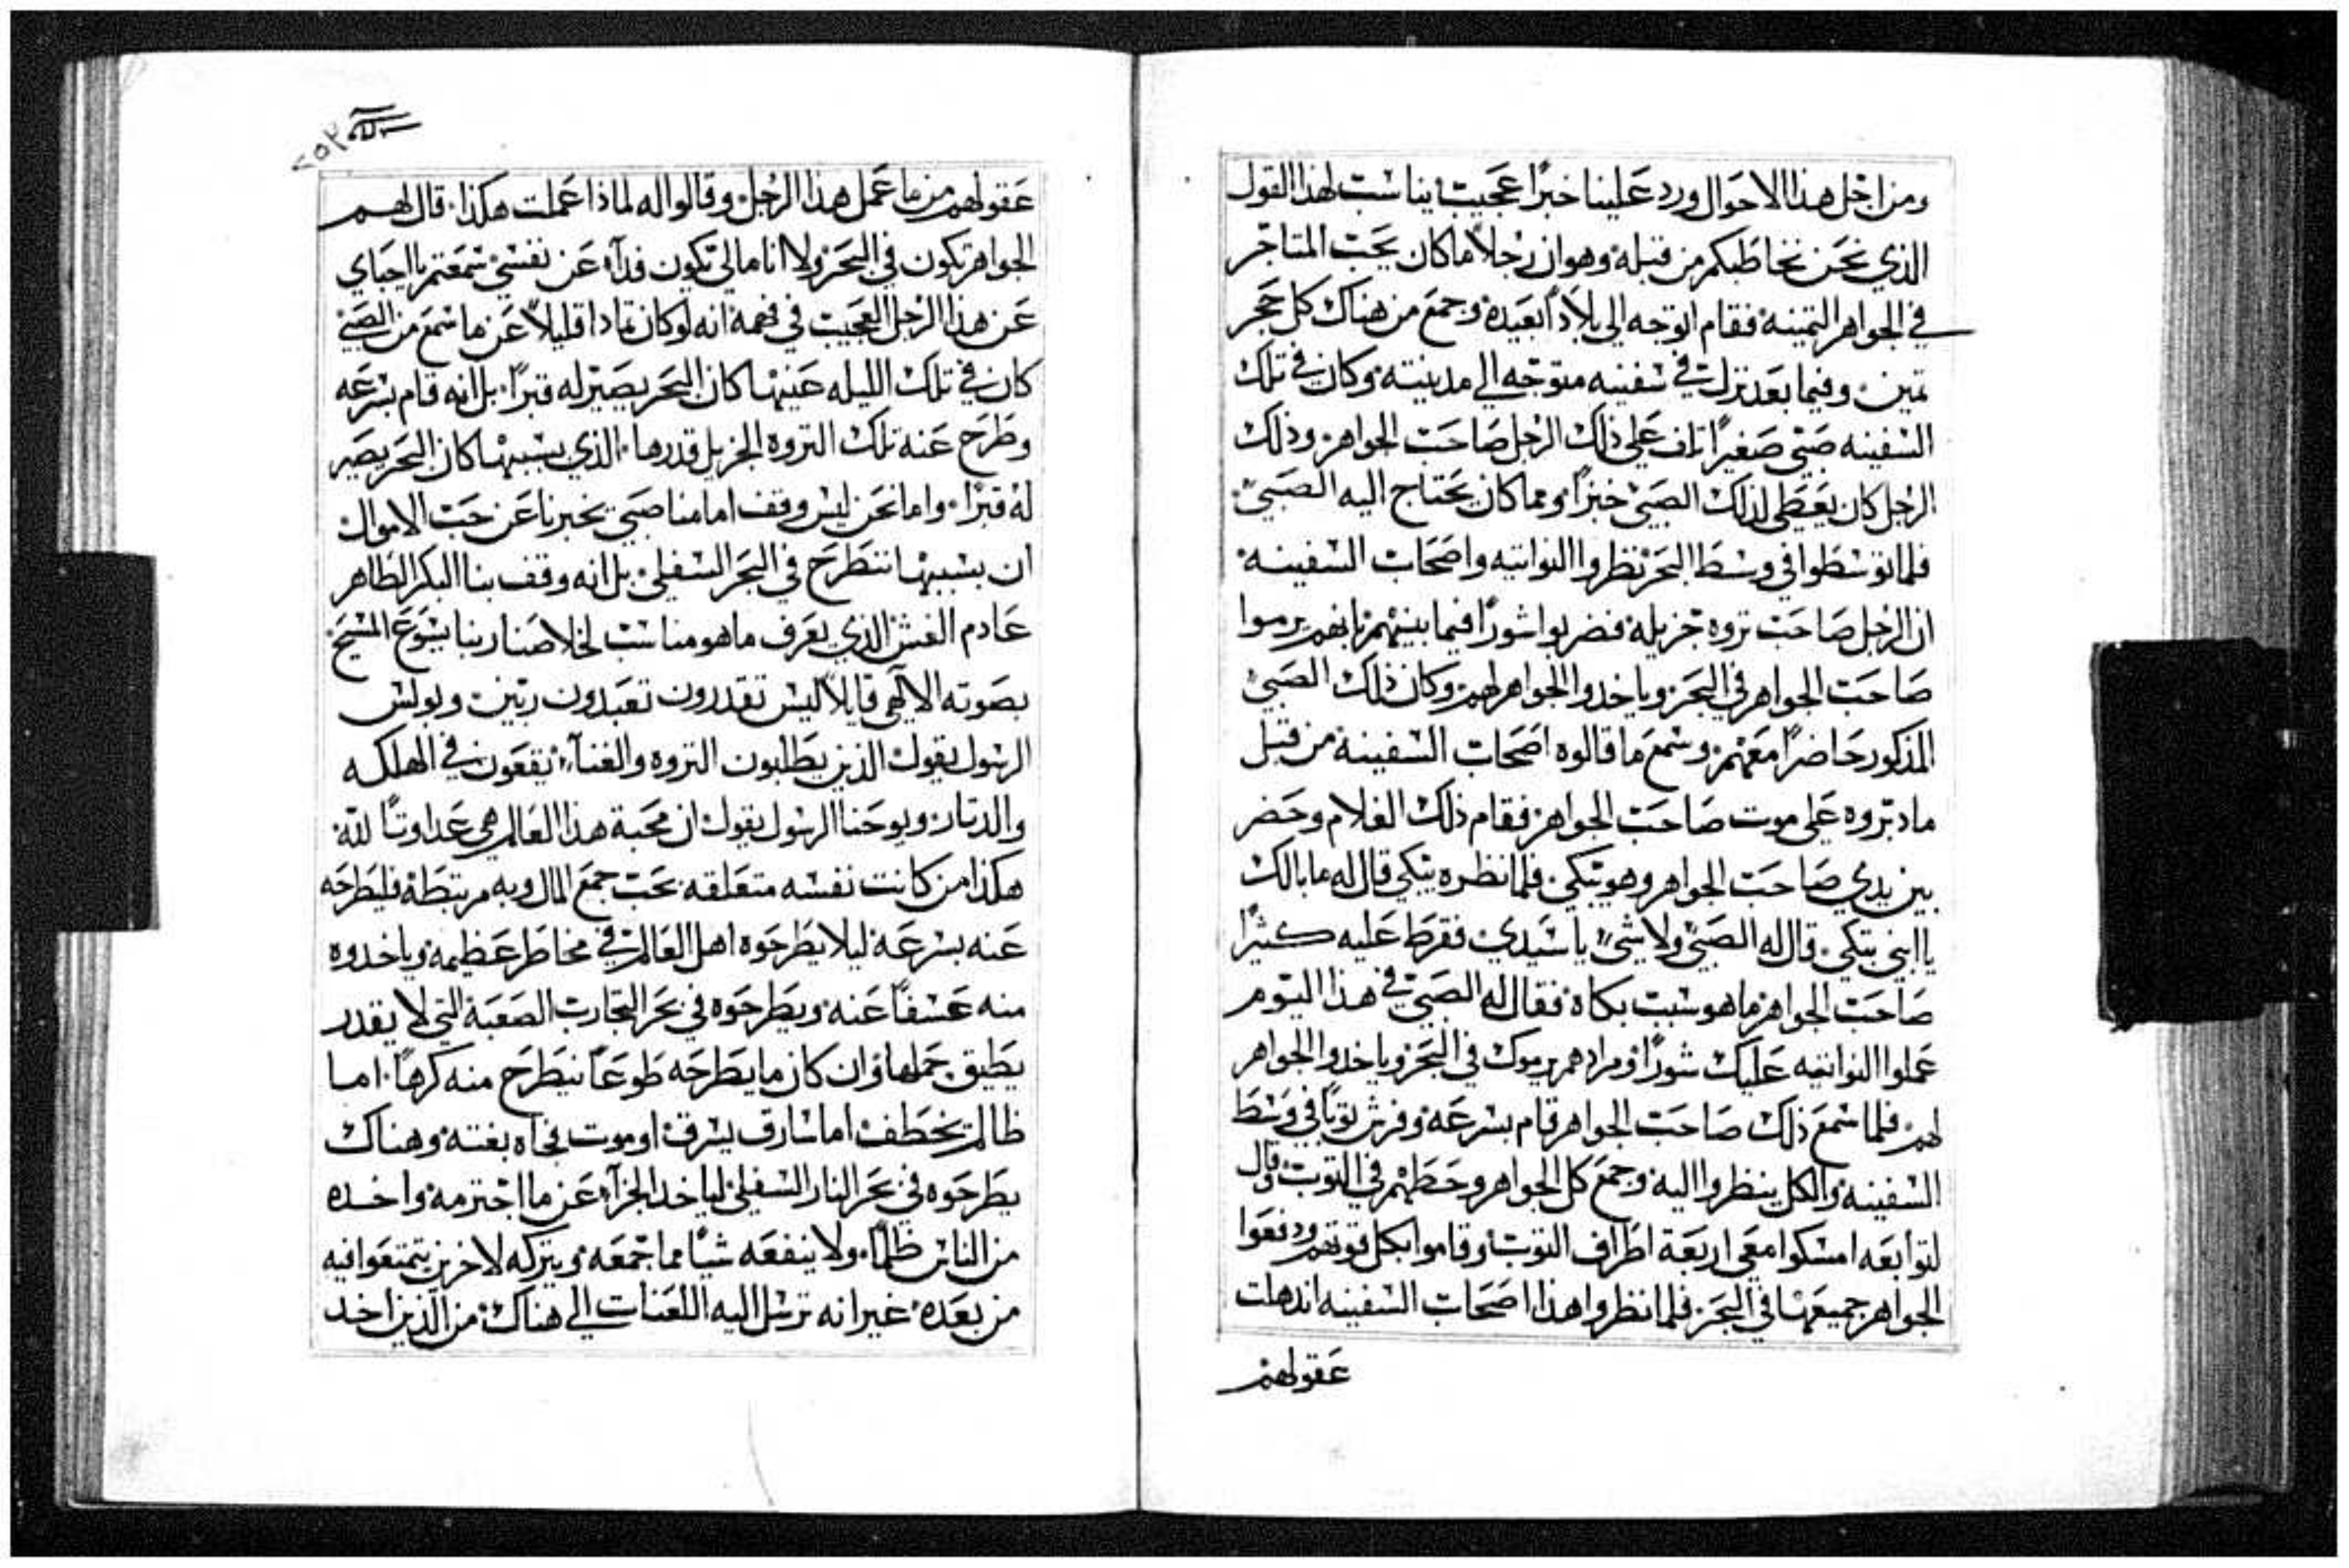 ومن اجل هذا الاحوال ورد علينا خبرًا عجيب يناسب لهذا القول
الذي نحن نخاطبكم من قبله وهو ان رجلاً ما كان يحب المتاجر
في الجواهر التمينه فقام اتوجه الى بلادًا بعيده وجمع من هناك كل حجر
تمين وفيما بعد نزل في سفينه متوجه الي مدينته وكان في تلك
السفينه صبي صغيرًا تلف علي ذلك الرجل صاحب الجواهر وذلك
الرجل كان يعطي لذلك الصبي خبزًا ومما كان يحتاج اليه الصبي
فلما توسطوا في وسط البحر نظروا النواتيه واصحاب السفينه
ان الرجل صاحب تروه جزيله فضربوا شورًا فيما بينهم بانهم يرموا
صاحب الجواهر في البحر وياخدوا الجواهر لهم وكان ذلك الصبي
المذكور حاضرًا معهم وسمع ما قالوه اصحاب السفينة من قبل
ما دبروه علي موت صاحب الجواهر فقام ذلك الغلام وحضر
بين يدي صاحب الجواهر وهو يبكي فلما نظره يبكي قال له ما بالك
يا ابني تبكي قال له الصبي ولا شي يا سيدي فقرط عليه كثيرًا
صاحب الجواهر ما هو سبب بكاه فقال له الصبي في هذا اليوم
عملوا النواتيه عليك شورًا ومرادهم يرموك في البحر وياخدوا الجواهر
لهم فلما سمع ذلك صاحب الجواهر قام بسرعه وفرش توبًا في وسط
السفينه والكل ينظروا اليه وجمع كل الجواهر وحطهم في التوب وقال
لتوابعه امسكوا معي اربعة اطراف التوب وقاموا بكل قوتهم ودفعوا
الجواهر جميعها في البحر فلما نظروا هذا اصحاب السفينه اندهلت
عقولهم
عقولهم من ما عمل هذا الرجل وقالوا له لماذا عملت هكذا قال لهم
الجواهر تكون في البحر ولا انا مالي تكون فدآء عن نفسي سمعتم يا احباي
عن هذا الرجل العجيب في فهمه انه لو كان تمادا قليلاً عن ما سمع من الصبي
كان في تلك الليله عينها كان البحر يصير له قبرًا بل انه قام بسرعه
وطرح عنه تلك التروه الجزيل قدرها الذي بسببها كان البحر يصير
له قبرًا واما نحن ليس وقف امامنا صبي يخبرنا عن حب الاموال
ان بسببها ننطرح في البحر السفلي بل انه وقف بنا البكر الطاهر
عادم الغش الذي يعرف ما هو مناسب لخلاصنا ربنا يسوع المسيح
بصوته الالهي قايلاً ليس تقدرون تعبدون ربين وبولس
الرسول يقول الذين يطلبون التروه والغنآء يقعون في الهلكه
والدتار ويوحنا الرسول يقول ان محبة هذا العالم هي عداوتًا لله
هكذا من كانت نفسه متعلقه بحب جمع المال وبه مرتبطة فليطرحه
عنه بسرعه ليلا يطرحوه اهل العالم في مخاطر عظيمه وياخدوه
منه عسفًا عنه ويطرحوه في بحر التجارب الصعبة التي لا يقدر
يطيق حملها وان كان ما يطرحه طوعًا ينطرح منه كرهًا اما
ظالم يخطف اما سارق يسرق او موت فجاه بغته وهناك
يطرحوه في بحر النار السفلي لياخد الجزآء عن ما اجترمه واخده
من الناس ظلمًا ولا ينفعه شيًا مما اجمعه ويتركه لاخرين يتمتعوا فيه
من بعده غير انه ترسل اليه اللعنات الي هناك من الذين اخد